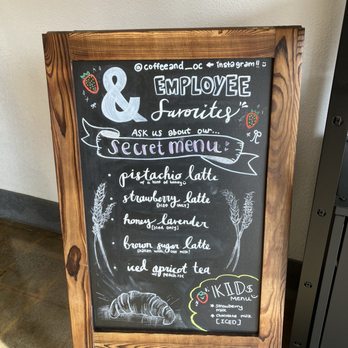 @coffeeand_oc ← Instagram!!
& EMPLOYEE
Favorites
ASK us about our...
secret menu
• pistachio latte
• strawberry latte
[iced only]
• honey lavender
[iced only]
• brown sugar latte
• iced apricot tea
KIDS
Menu
• Strawberry
milk
• Chocolate milk
[ICED]